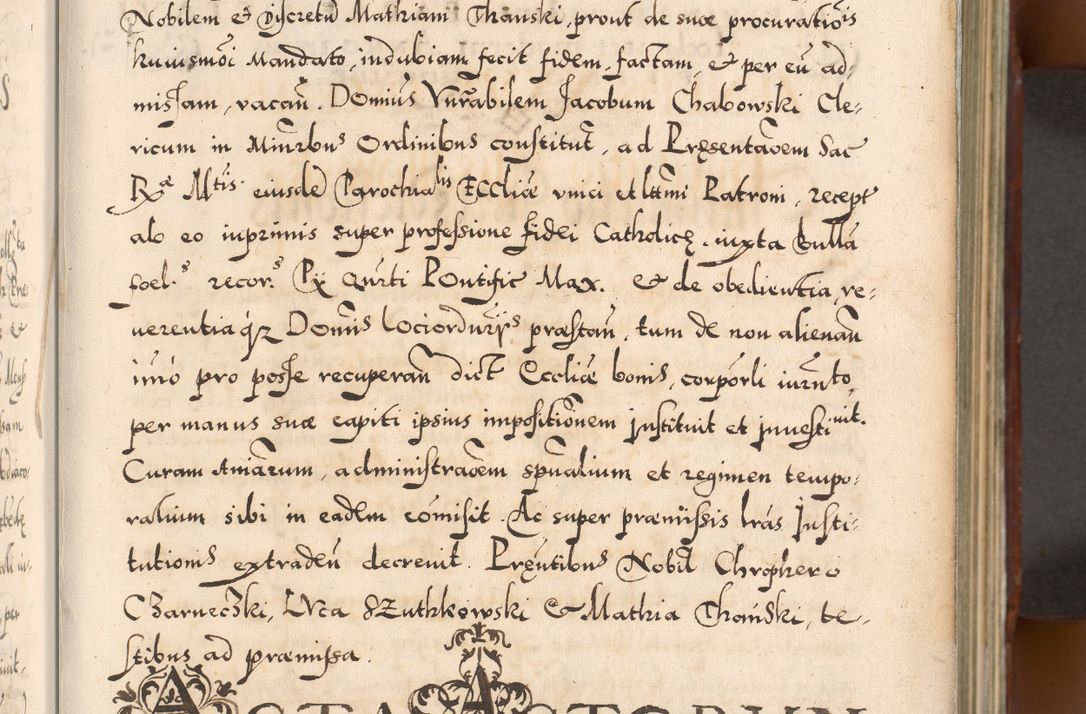 Nobilem et Discretū Mathiam Thanski, prout de suæ procuratiōis
huiusmōi Mandato, indubiam fecit fidem, factam, et per eū ad,
missam, vacan̄. Domiūs Vn̄rabilem Jacobum Chabowski Cle-
ricum in Min̄rbus Ordinibus constitut̄, ad Pręsentaōem Sac
Rae Mtis. eiusdē Parochialis Eccliæ vnici et lttm̄i Patroni, recept
ab eo inprimis super professione fidei Catholicę, iuxta Bullā
foel.s recor.s Pij Qūrti Pontific Max. et de obedientia, re-
uerentiaq́z Domīs lociordūrijs præstan̄, tum de non alienan̄
imò pro posse recuperan̄ dict Eccliæ bonis, corporli iur̄nto,
per manus suæ capiti ipsius impositiōnem instituit et inuestiuit.
Curam Aniārum, administraōem spūalium et regimen tempo,
ralium sibi in eadēm cōmisit. Ac super præmissis lrās Justi-
tutionis extraden̄ decreuit. Pręn̄tibus Nobil Chrophero
Czarneczki, Luca Szuthkowski et Mathia Thanski, te-
stibus ad præmissa.
ACTA ACTORUM